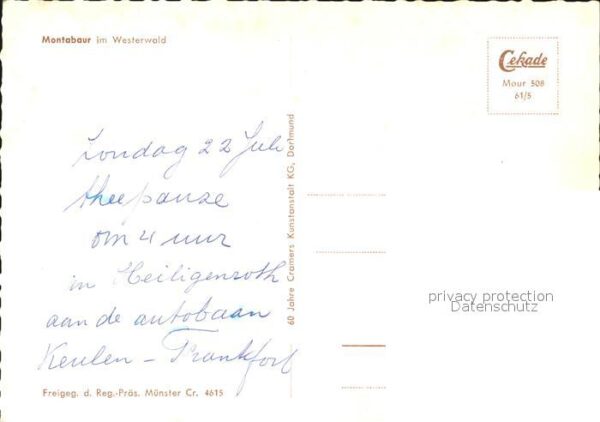 Montabaur im Westerwald
Cekade
Mour 508
61/5
Zondag 22 Juli
theepauze
om 4 uur
in Heiligenroth
aan de autobaan
Keulen - Frankfort
60 Jahre Cramers Kunstanstalt KG, Dortmund
privacy protection
Datenschutz
Freigeg. d. Reg.-Präs. Münster Cr. 4615